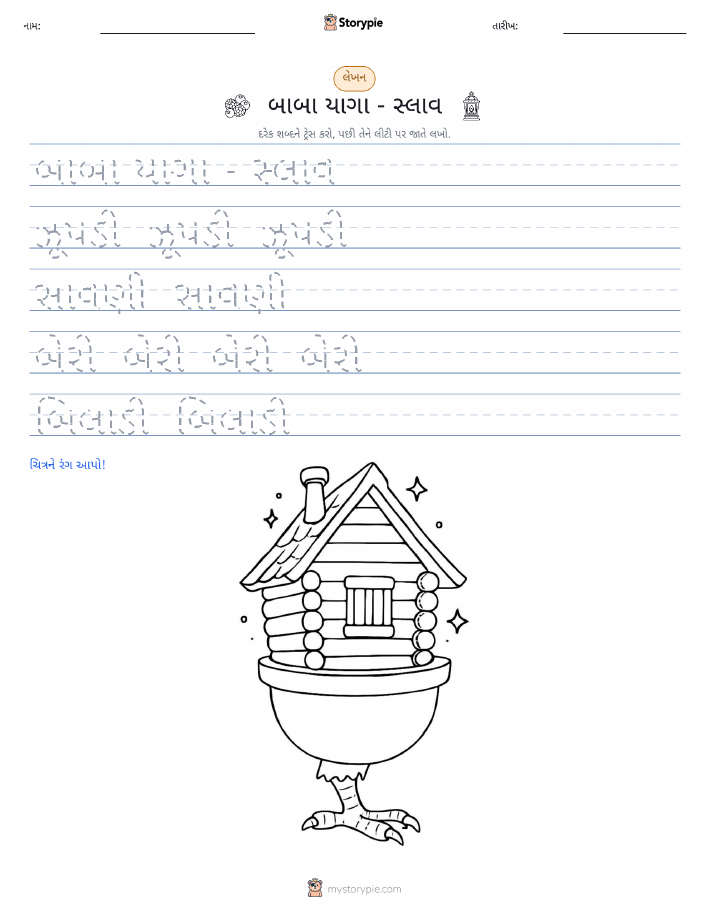 નામ: Storypie તારીખ:
લેખન
બાબા યાગા - સ્લાવ
દરેક શબ્દને ટ્રેસ કરો, પછી તેને લીટી પર જાતે લખો.
બાબા યાગા - સ્લાવ
ઝૂંપડી ઝૂંપડી ઝૂંપડી
સાવણી સાવણી
બેરી બેરી બેરી બેરી
બિલાડી બિલાડી
ચિત્રને રંગ આપો!
mystorypie.com